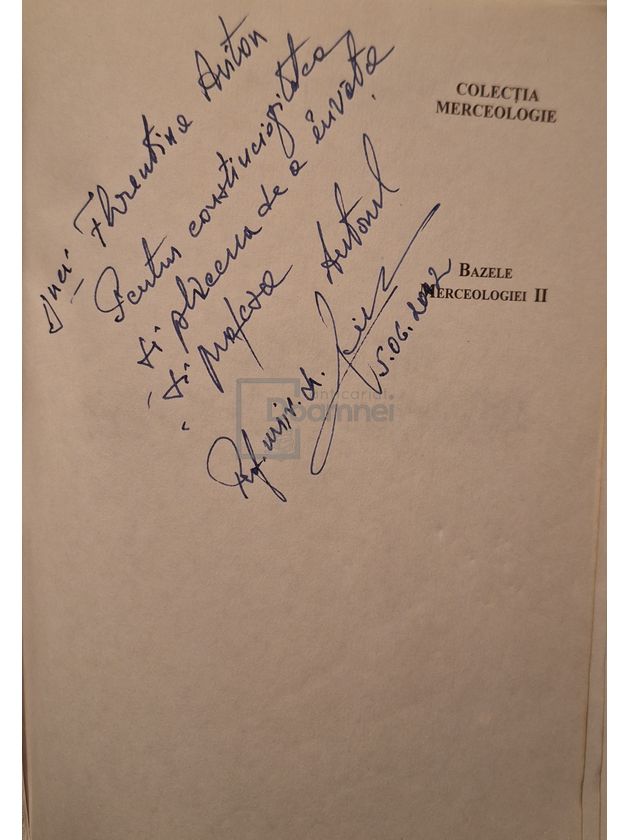 COLECȚIA
MERCEOLOGIE
BAZELE
MERCEOLOGIEI II
D-nei Florentina Anton
Pentru conștinciozitatea
și plăcerea de a învăța
și
Autorul
Prof.
5.06.2002
anticariat
Doamnei